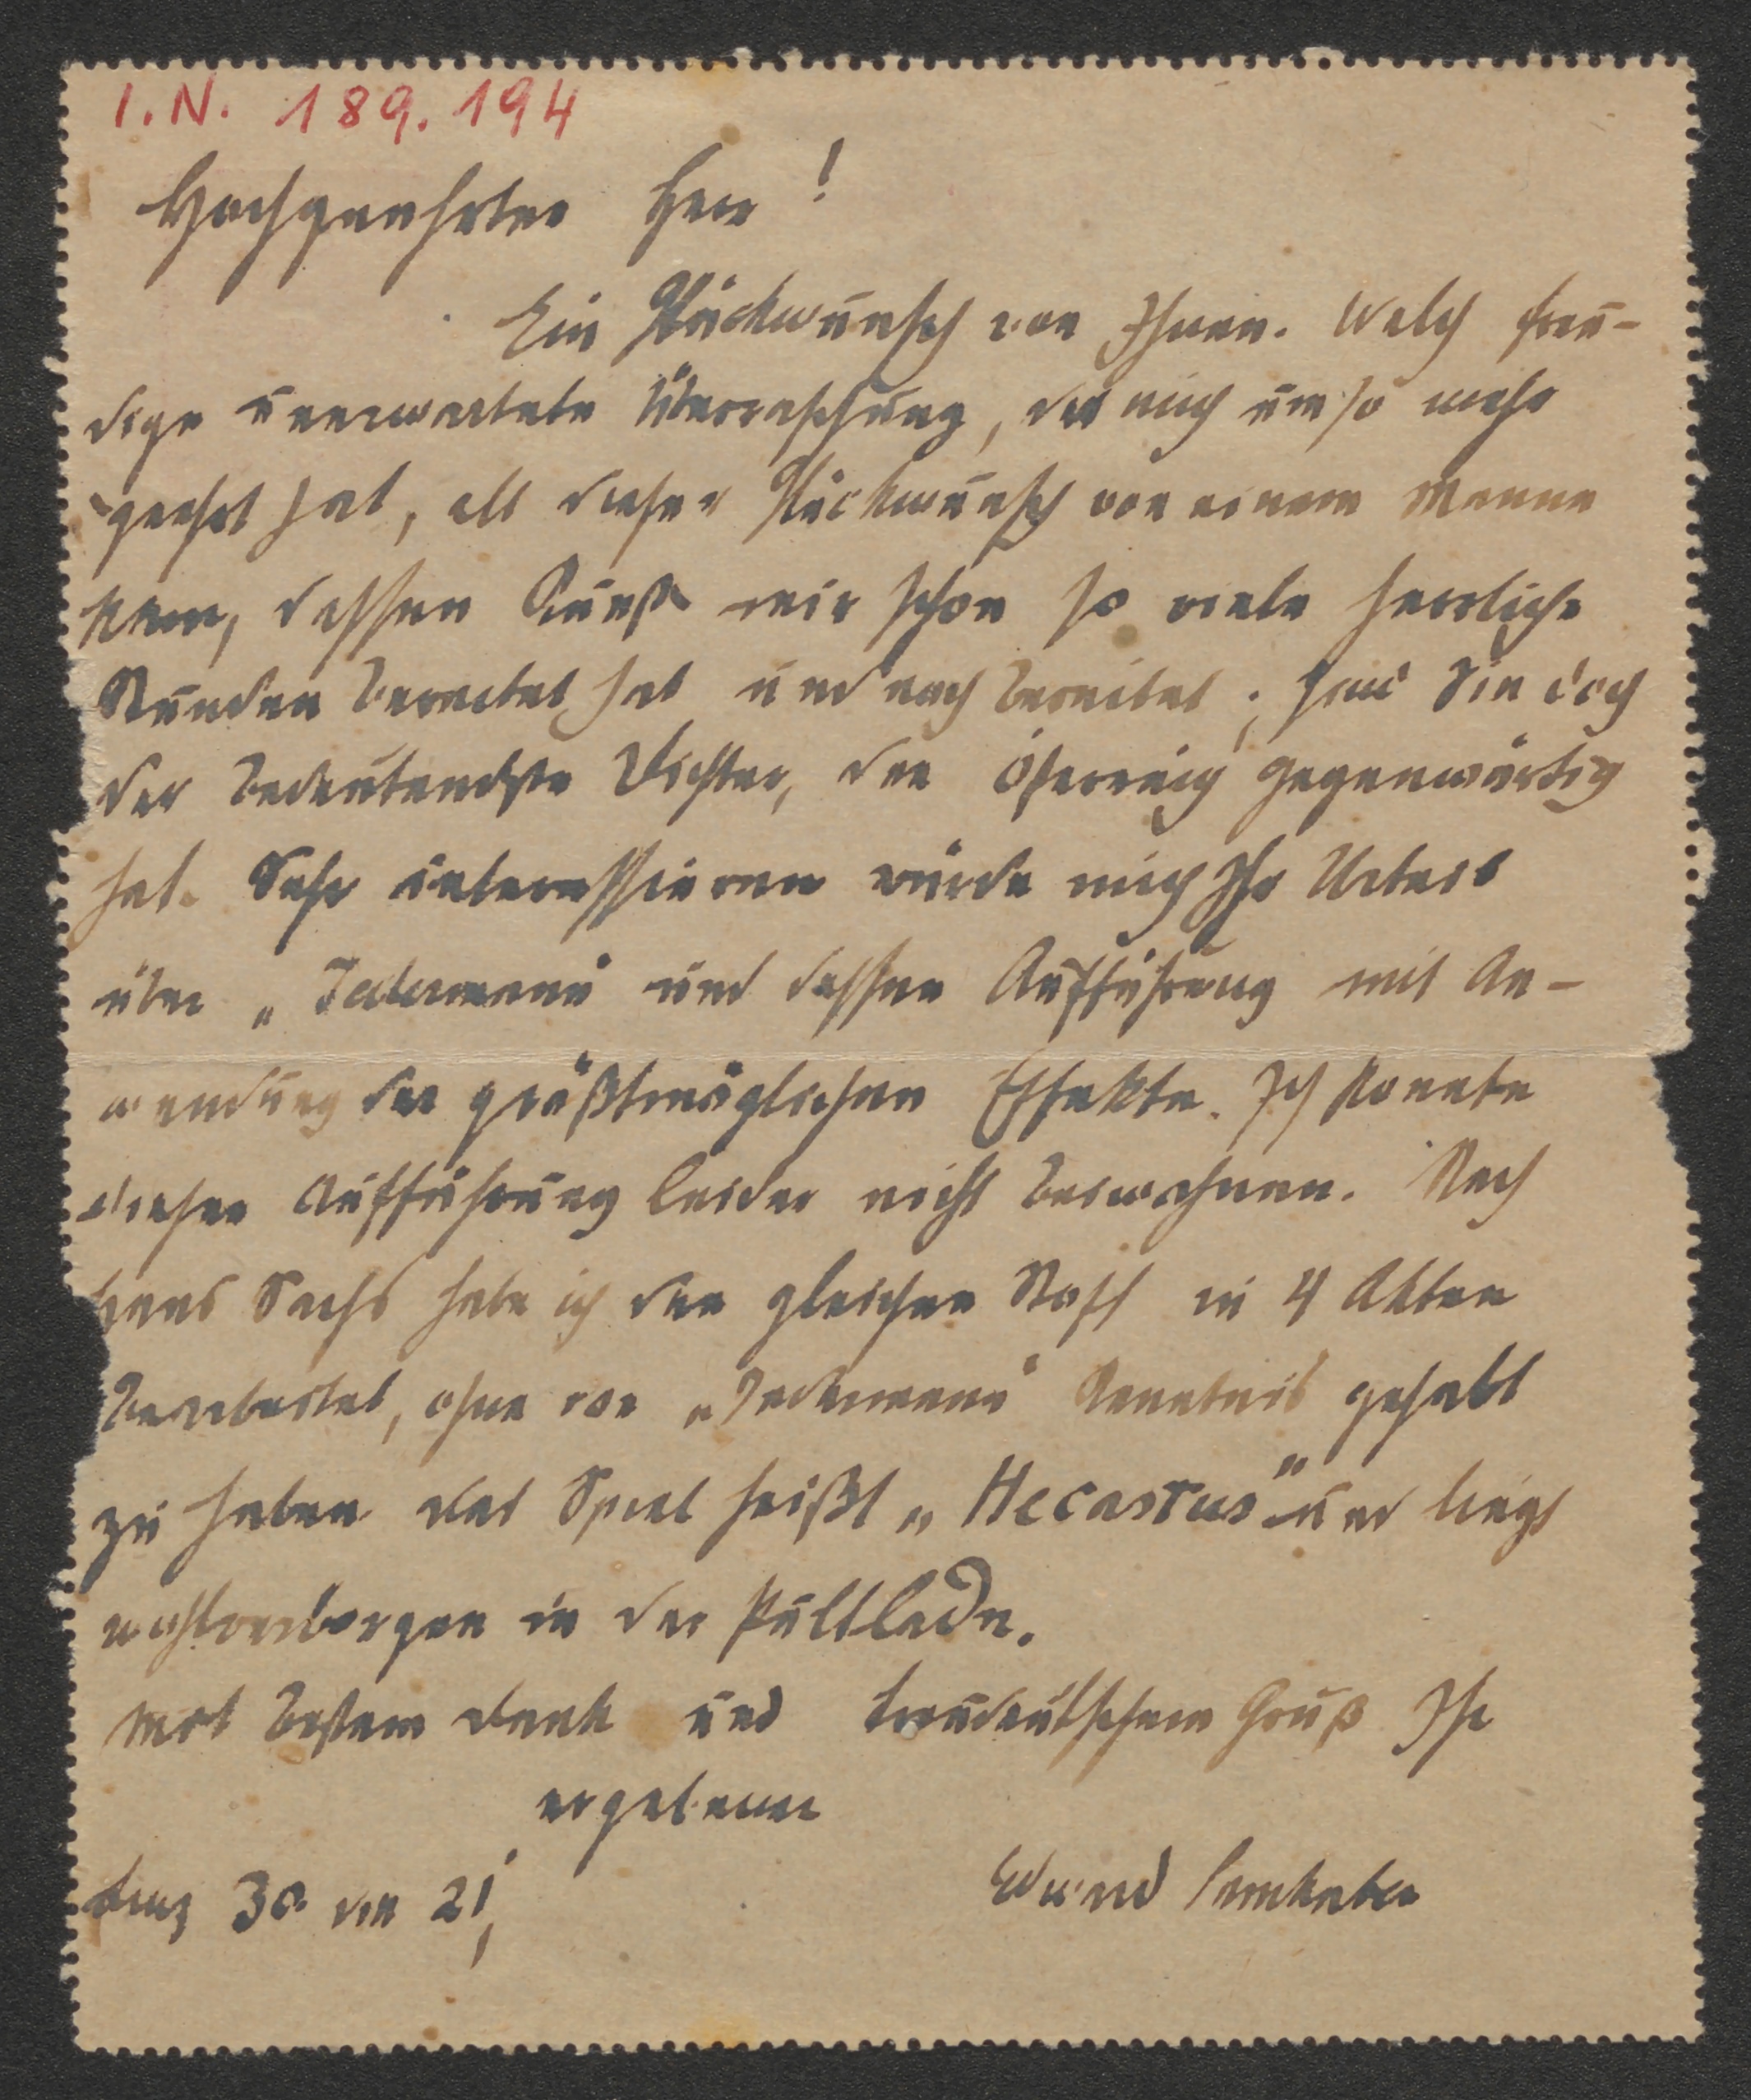 I. N. 189.194
Hochgeehrter Herr!
Ein Glückwunsch von Ihnen. Welch freu-
dige unerwartete Überraschung, die mich umso mehr
geehrt hat, als dieser Glückwunsch von einem Manne
kam, dessen Kunst mir schon so viele herrliche
Stunden bereitet hat und noch bereitet; sind Sie doch
der bedeutendste Dichter, den Österreich gegenwärtig
hat. Sehr interessieren würde mich Ihr Urteil
über „Jedermann“ und dessen Aufführung mit An-
wendung der größtmöglichen Effekte. Ich konnte
dieser Aufführung leider nicht beiwohnen. Nach
Hans Sachs habe ich den gleichen Stoff in 4 Akten
bearbeitet, ohne von „Jedermann“ Kenntnis gehabt
zu haben das Spiel heißt „Hecastus“ und liegt
wohlverborgen in der Pultlade.
Mit bestem Dank und treudeutschem Gruß Ihr
ergebener
Linz 30. VIII 21